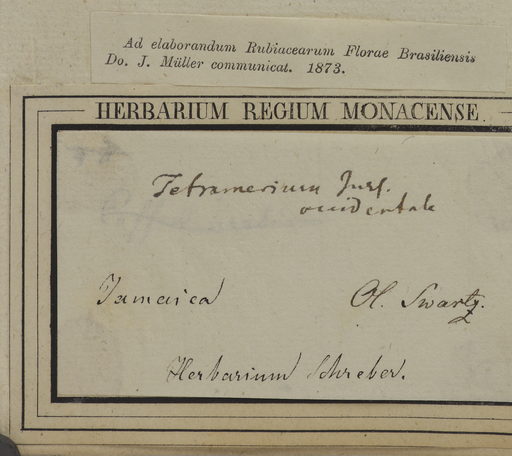 Ad elaborandum Rubiacearum Florae Brasiliensis
Do. J. Müller communicat. 1873.
HERBARIUM REGIUM MONACENSE.
Tetramerium
occidentale
Jamaica Ol. Swartz.
Herbarium Schreber.